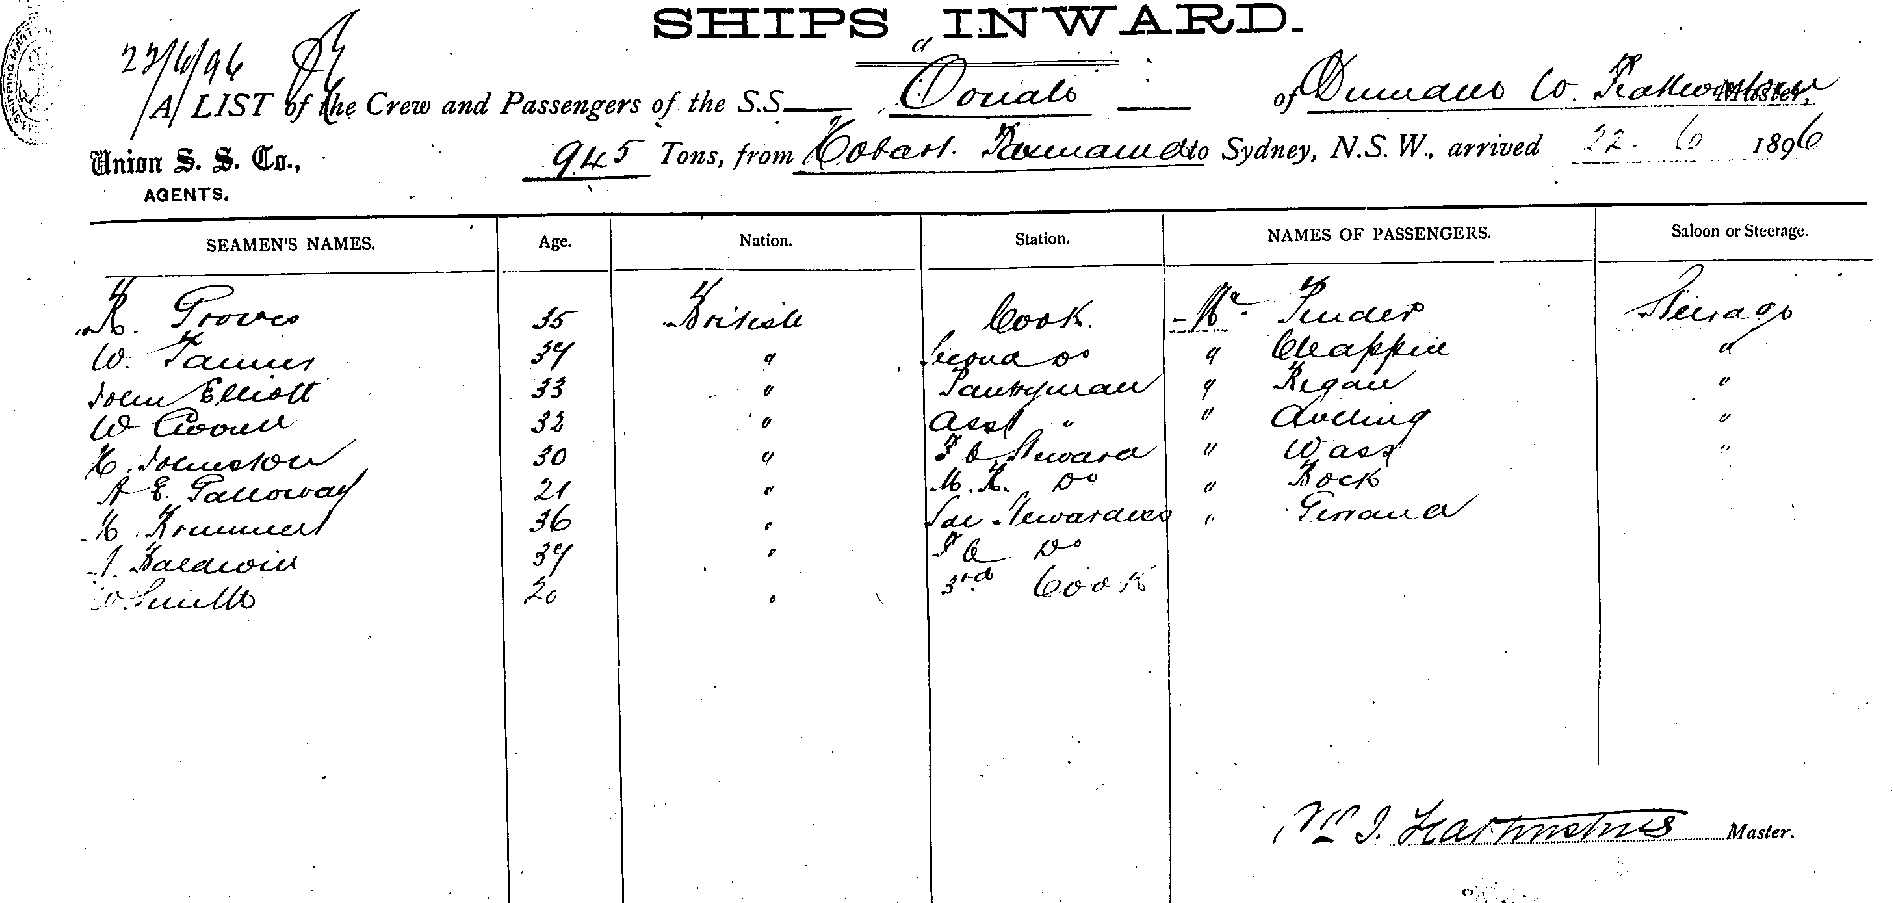 SHIPS INWARD.
23/6/96
A LIST of the Crew and Passengers of the S.S. "Oonah" of Dunedin W. Master,
Union S. S. Co., 945 Tons, from Hobart. Tasmania to Sydney, N.S.W., arrived 22. 6 1896
AGENTS.
SEAMEN'S NAMES. Age. Nation. Station. NAMES OF PASSENGERS. Saloon or Steerage.
R. Groves 35 British Cook. Mr Pender Steerage
W. Tanner 37 " Second Do " Chappin "
John Elliott 33 " Pantryman " Regan "
W 32 " Asst " " Avelling "
H. Johnston 30 " F C Steward " Wass "
A E. Galloway 21 " M. R. Do " Rock
36 " Sal Stewardess "
Baldwin 37 " F C Do
W Smith 20 " 3rd Cook
Master.